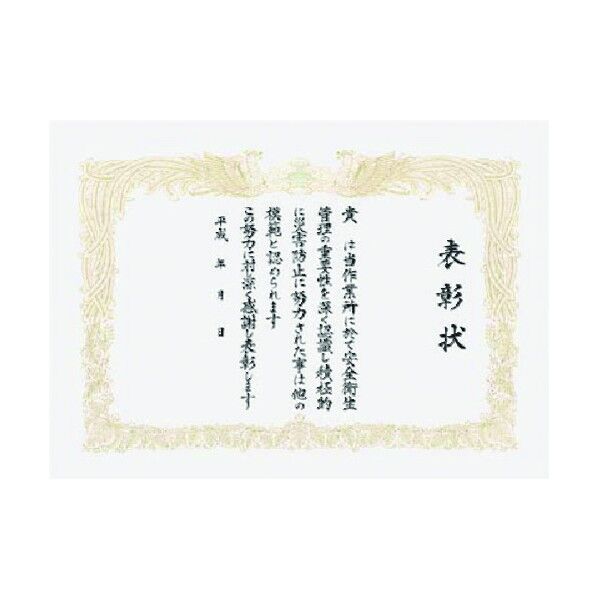 表彰状
貴　は当作業所に於て安全衛生
管理の重要性を深く認識し積極的
に災害防止に努力された事は他の
模範と認められます
この努力に対深く感謝し表彰します
平成　年　月　日